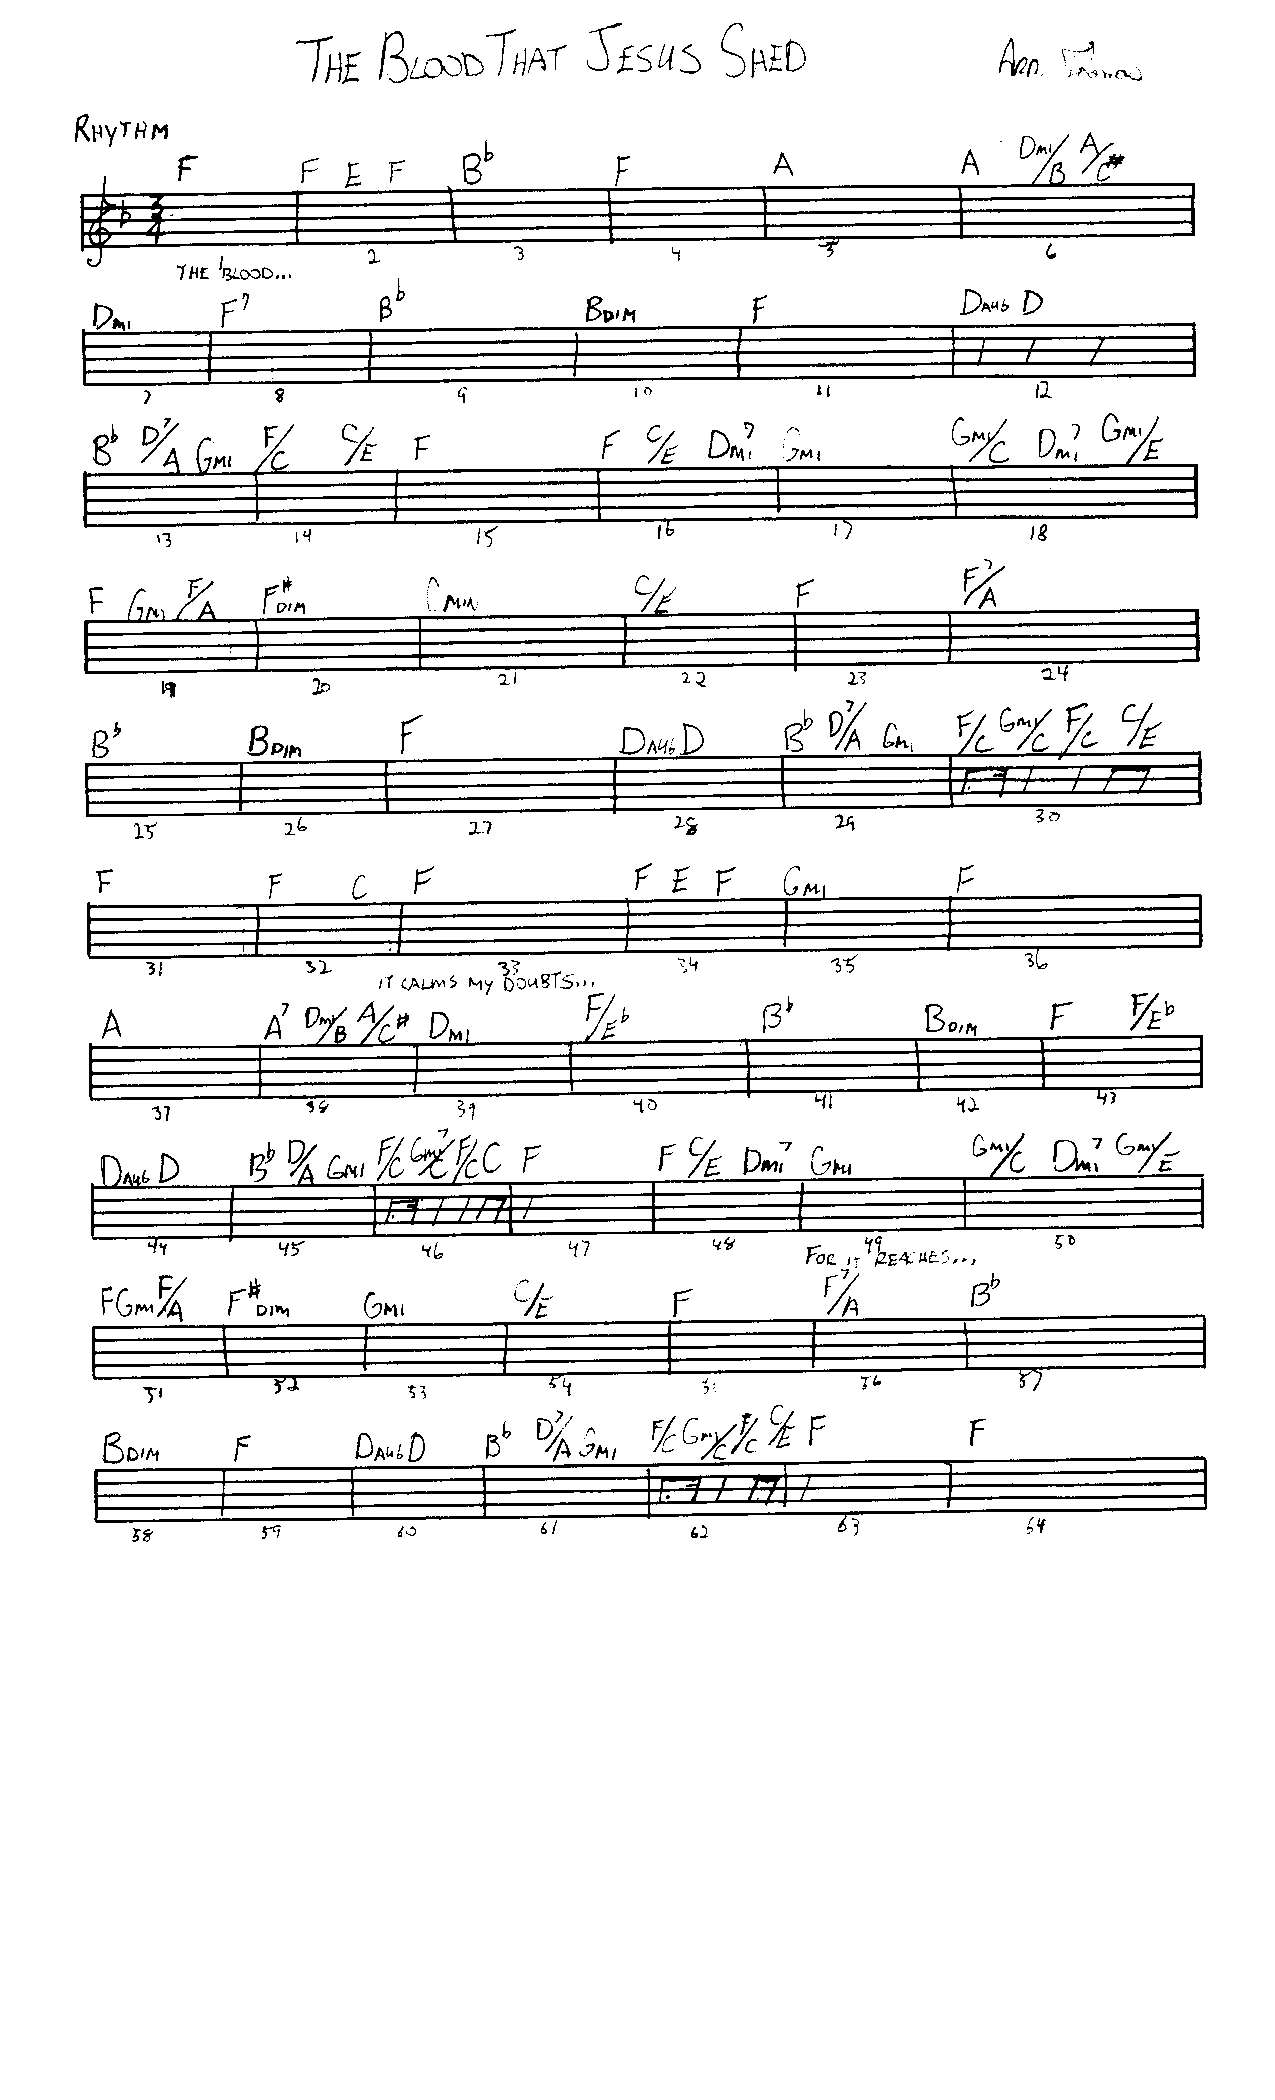 THE BLOOD THAT JESUS SHED
ARR.
RHYTHM
F F E F B♭ F A A DMI/B A/C#
2 3 4 5 6
THE BLOOD...
DMI F7 B♭ BDIM F DAUG D
7 8 9 10 11 12
B♭ D7/A GMI F/C C/E F F C/E DMI7 GMI GMI/C DMI7 GMI/E
13 14 15 16 17 18
F GMI F/A F#DIM CMIN C/E F F7/A
19 20 21 22 23 24
B♭ BDIM F DAUG D B♭ D7/A GMI F/C GMI/C F/C C/E
25 26 27 28 29 30
F F C F F E F GMI F
31 32 33 34 35 36
IT CALMS MY DOUBTS...
A A7 DMI/B A/C# DMI F/E♭ B♭ BDIM F F/E♭
37 38 39 40 41 42 43
DAUG D B♭ D/A GMI F/C GMI7/C F/C C F F C/E DMI7 GMI GMI/C DMI7 GMI/E
44 45 46 47 48 49 50
FOR IT REACHES...
F GMI F/A F#DIM GMI C/E F F7/A B♭
51 52 53 54 56 57
BDIM F DAUG D B♭ D7/A GMI F/C GMI/C F/C C/E F F
58 59 60 61 62 63 64